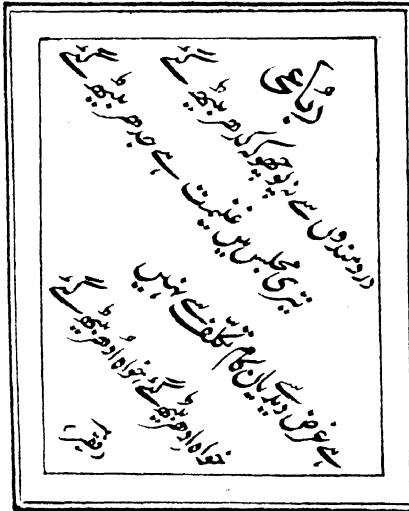 رُباعی
دردمندوں سے نہ پوچھو کہ کدھر بیٹھ گئے
تیری مجلس میں غنیمت ہے جدھر بیٹھ گئے
ہے غرض دید سے یاں کام تکلّف سے نہیں
خواہ اِدھر بیٹھ گئے، خواہ اُدھر بیٹھ گئے